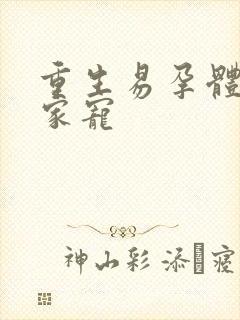 重生易孕體
家寵
神山彩添 寢